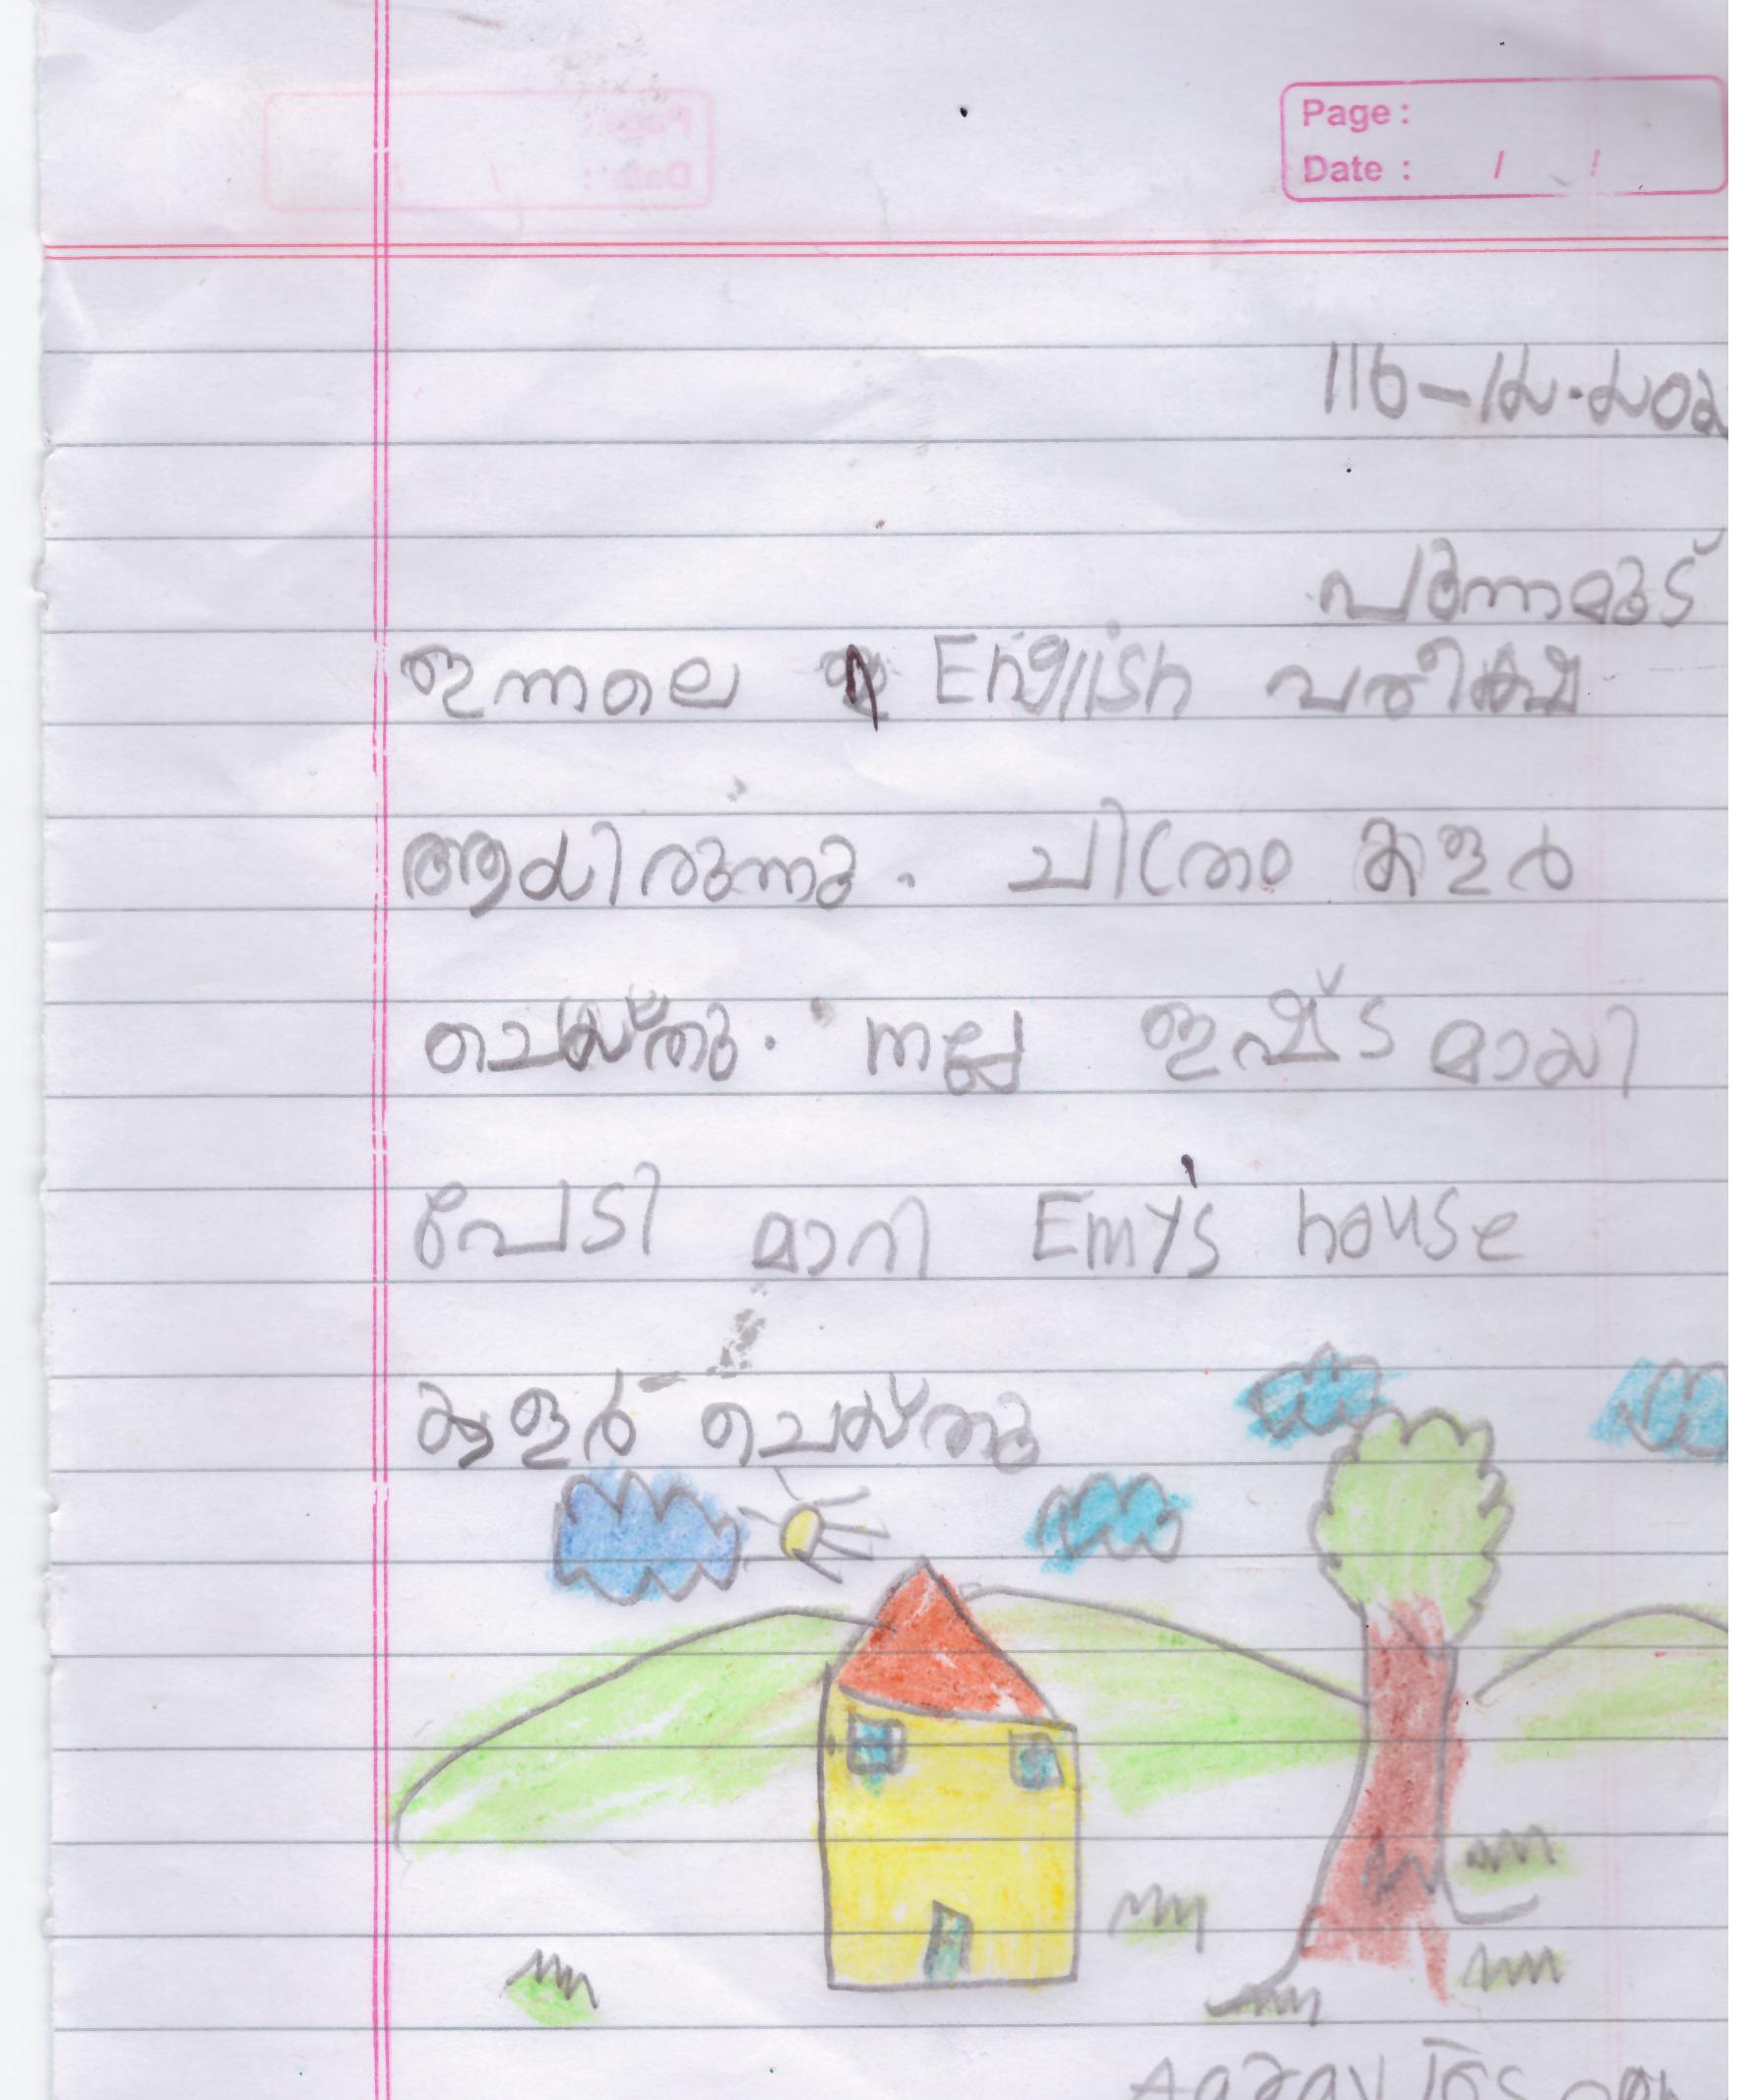 Page :
Date : / /
പുന്നമൂട്
ഇന്നലെ English പരീക്ഷ
ആയിരുന്നു. ചിത്രം കളർ
ചെയ്തു. നല്ല ഇഷ്ട മായി
പേടി മാറി Emy's house
കളർ ചെയ്തു